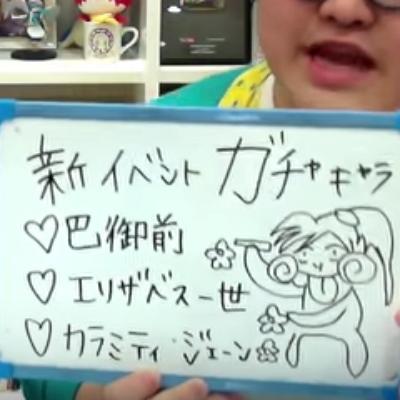 新イベント ガチャキャラ
♡巴御前
♡エリザベス一世
♡カラミティ・ジェーン